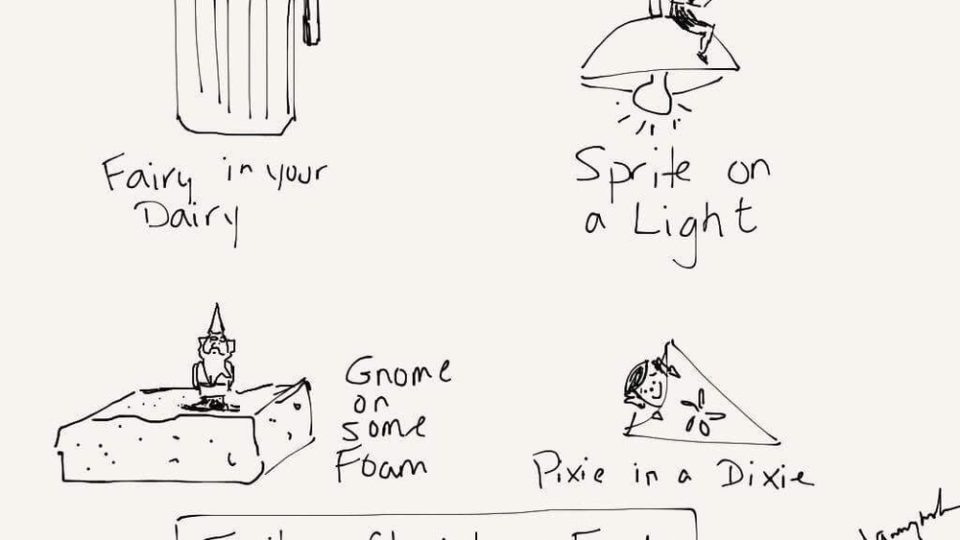 Fairy in your
Dairy
Sprite on
a Light
Gnome
on
some
Foam
Pixie in a Dixie